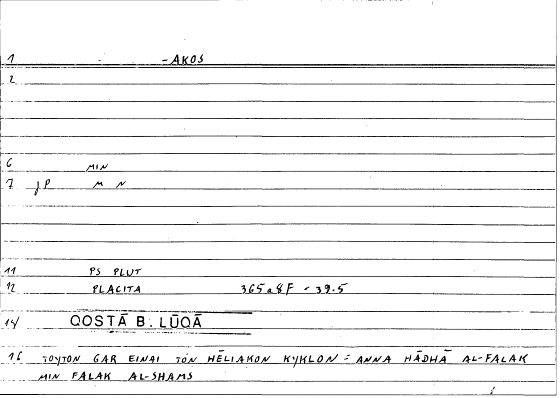 1 -AKOS
2
6 MIN
7 jP M N
11 PS PLUT
12 PLACITA 365a8F - 39.5
14 QOSTĀ B. LŪQĀ
16 TOYTON GAR EINAI TON HĒLIAKON KYKLON = ANNA HĀDHĀ AL-FALAK
MIN FALAK AL-SHAMS